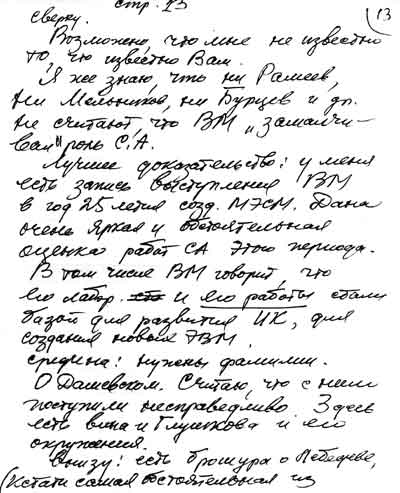 стр. 13
13
сверху.
Возможно, что мне не известно
то, что известно Вам.
Я же знаю, что ни Рамеев,
ни Мельников, ни Бурцев и др.
не считают что ВМ „замалчи-
вал" роль С.А.
Лучшее доказательство: у меня
есть запись выступления ВМ
в год 25 летия созд. МЭСМ. Дана
очень яркая и обстоятельная
оценка работ СА этого периода.
В том числе ВМ говорит, что
его лабор. и его работы стали
базой для развития ИК, для
создания новых ЭВМ.
средина: нужны фамилии.
О Дашевском. Считаю, что с ним
поступили несправедливо. Здесь
есть вина и Глушкова и его
окружения.
Внизу: есть брошура о Лебедеве,
(Кстати самая обстоятельная из